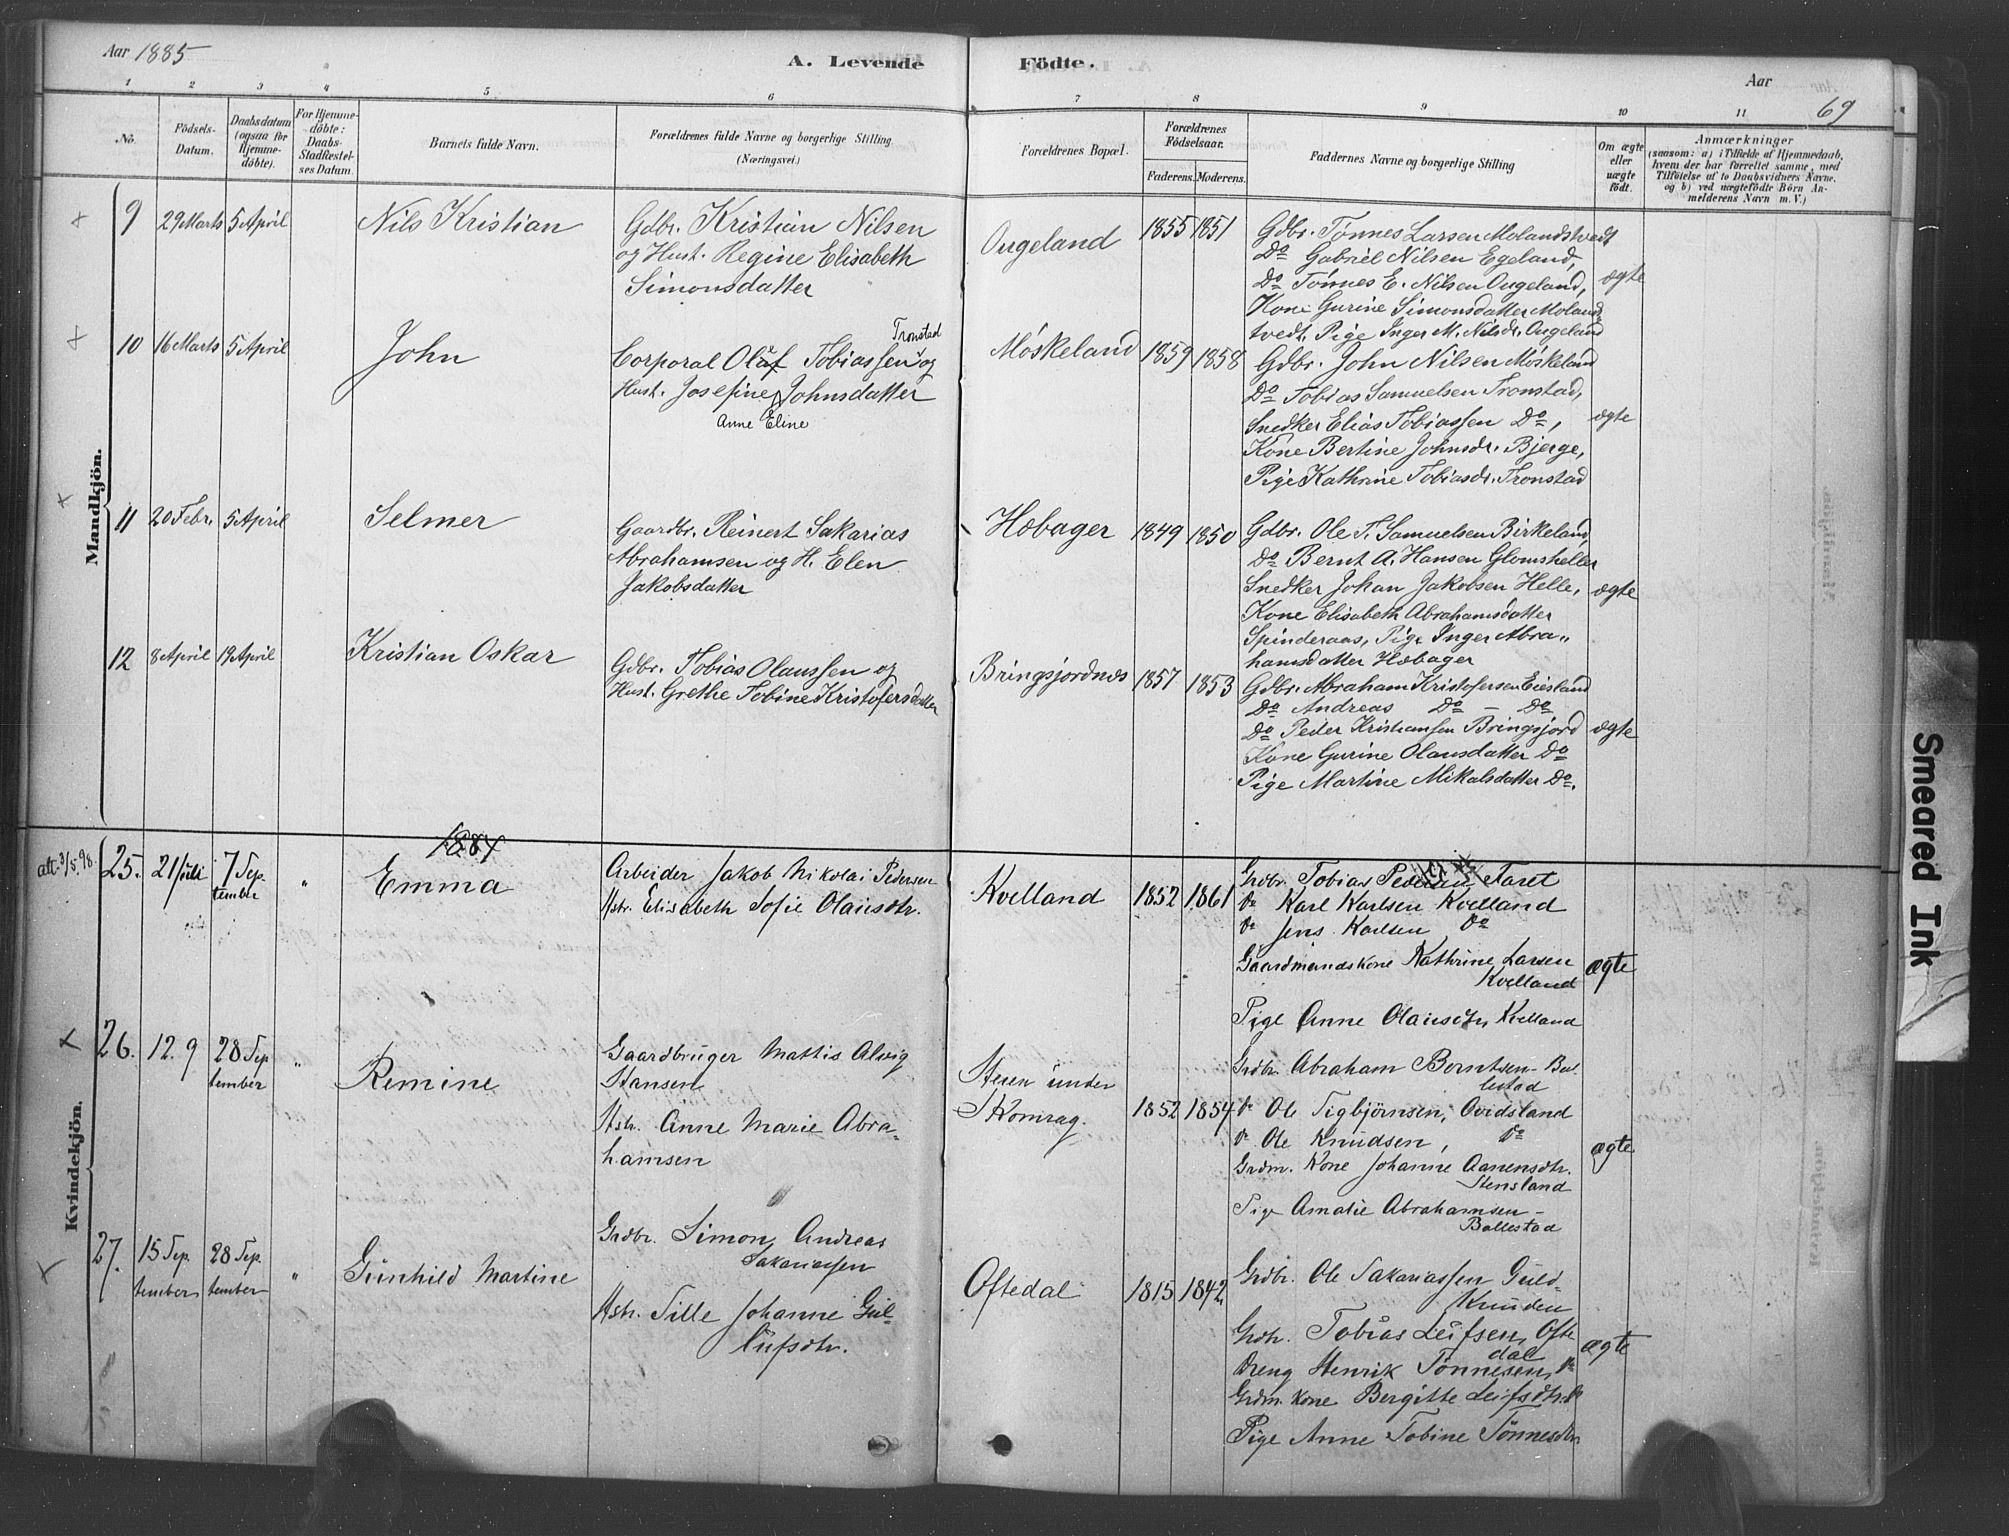 Aar 1885
A. Levende
Födte.
Aar
69
1 2 3 4 5 6 7 8 9 10 11
No.
Födsels-
Datum.
Daabsdatum
(ogsaa for
Hjemme-
döbte).
For Hjemme-
döbte:
Daabs-
Stadfestel-
ses Datum.
Barnets fulde Navn.
Forældrenes fulde Navne og borgerlige Stilling
(Næringsvei.)
Forældrenes Bopæl.
Forældrenes
Födselsaar.
Faderens. Moderens.
Faddernes Navne og borgerlige Stilling
Om ægte
eller
uægte
födt.
Anmærkninger
(saasom: a) i Tilfælde af Hjemmedaab,
hvem der har forrettet samme, med
Tilföielse af to Daabsvidners Navne.
og b) ved uægtefödte Börn An-
melderens Navn m. V.)
Mandkjön.
9 29 Marts 5 April
Nils Kristian
Gdbr. Kristian Nilsen
og Hust. Regine Elisabeth
Simonsdatter
Ougeland
1855 1851
Gdbr. Tönnes Larsen Molandstvedt
Do Gabriel Nilsen Egeland,
Do Tönnes E. Nilsen Ougeland,
Kone Gurine Simonsdatter Molands
tvedt, Pige Inger M. Nilsdr. Ougeland
ægte
10 16 Marts 5 April
John
Tronstad
Corporal Oluf Tobiassen og
Hust. Josefine Johnsdatter
Anne Eline
Möskeland
1859 1858
Gdbr. John Nilsen Möskeland
Do Tobias Samuelsen Tronstad,
Snedker Elias Tobiassen Do,
Kone Bertine Johnsdr. Bjerge,
Pige Kathrine Tobiasdr. Tronstad
ægte
11 20 Febr. 5 April
Selmer
Gaardbr. Reinert Sakarias
Abrahamsen og H. Elen
Jakobsdatter
Hæbager
1849 1850
Gdbr. Ole T. Samuelsen Birkeland,
Do Bernt A. Hansen Glomsheller
Snedker Johan Jakobsen Helle,
Kone Elisabeth Abrahamsdatter
Spinderaas, Pige Inger Abra„
hamsdatter Hæbager
ægte
12 8 April 19 April
Kristian Oskar
Gdbr. Tobias Olaussen og
Hust. Grethe Tobine Kristofersdatter
Bringsjordnes
1857 1853
Gdbr. Abraham Kristofersen Eiesland
Do Andreas Do – Do
Do Peder Kristiansen Bringsjord
Kone Gurine Olausdatter Do
Pige Martine Mikalsdatter Do.
ægte
1884
Kvindekjön.
att. 3/5 98.
25. 21 Juli 7 Sep.
tember „
Emma
Arbeider Jakob Nikolai Pedersen
Hstr. Elisabeth Sofie Olausdtr.
Kvelland
1852 1861
Grdbr. Tobias Pedersen Faret
do Karl Karlsen Kvelland
do Jens Karlsen do
Gaardmandskone Kathrine Larsen
Kvelland
Pige Anne Olausdtr, Kvelland
ægte
26. 12. 9 28 Sep
tember „
Remine
Gaardbruger Mattis Alvig
Hansen
Hstr. Anne Marie Abra-
hamsen
Steen under
Skomrag.
1852 1854
Grdbr. Abraham Berntsen – Bol
lestad
do Ole Sigbjörnsen, Ovidsland
do Ole Knudsen, do
Grdm. Kone Johanne Aanensdtr.
Stensland
Pige Amalie Abrahamsen –
Bollestad
ægte.
27. 15 Sep. 28 Sep.
tember tember „
Gunhild Martine
Grdbr. Simon Andreas
Sakariassen
Hstr. Sille Johanne Gul-
lufsdtr.
Oftedal
1815 1842
Grdbr. Ole Sakariassen Guld-
Knuden
Grdbr. Tobias Leifsen, Ofte
dal
Dreng Henrik Tönnesen, do
Grdm. Kone Bergitte Leifsdtr. do
Pige Anne Tobine Tönnesdtr
ægte
Smeared Ink